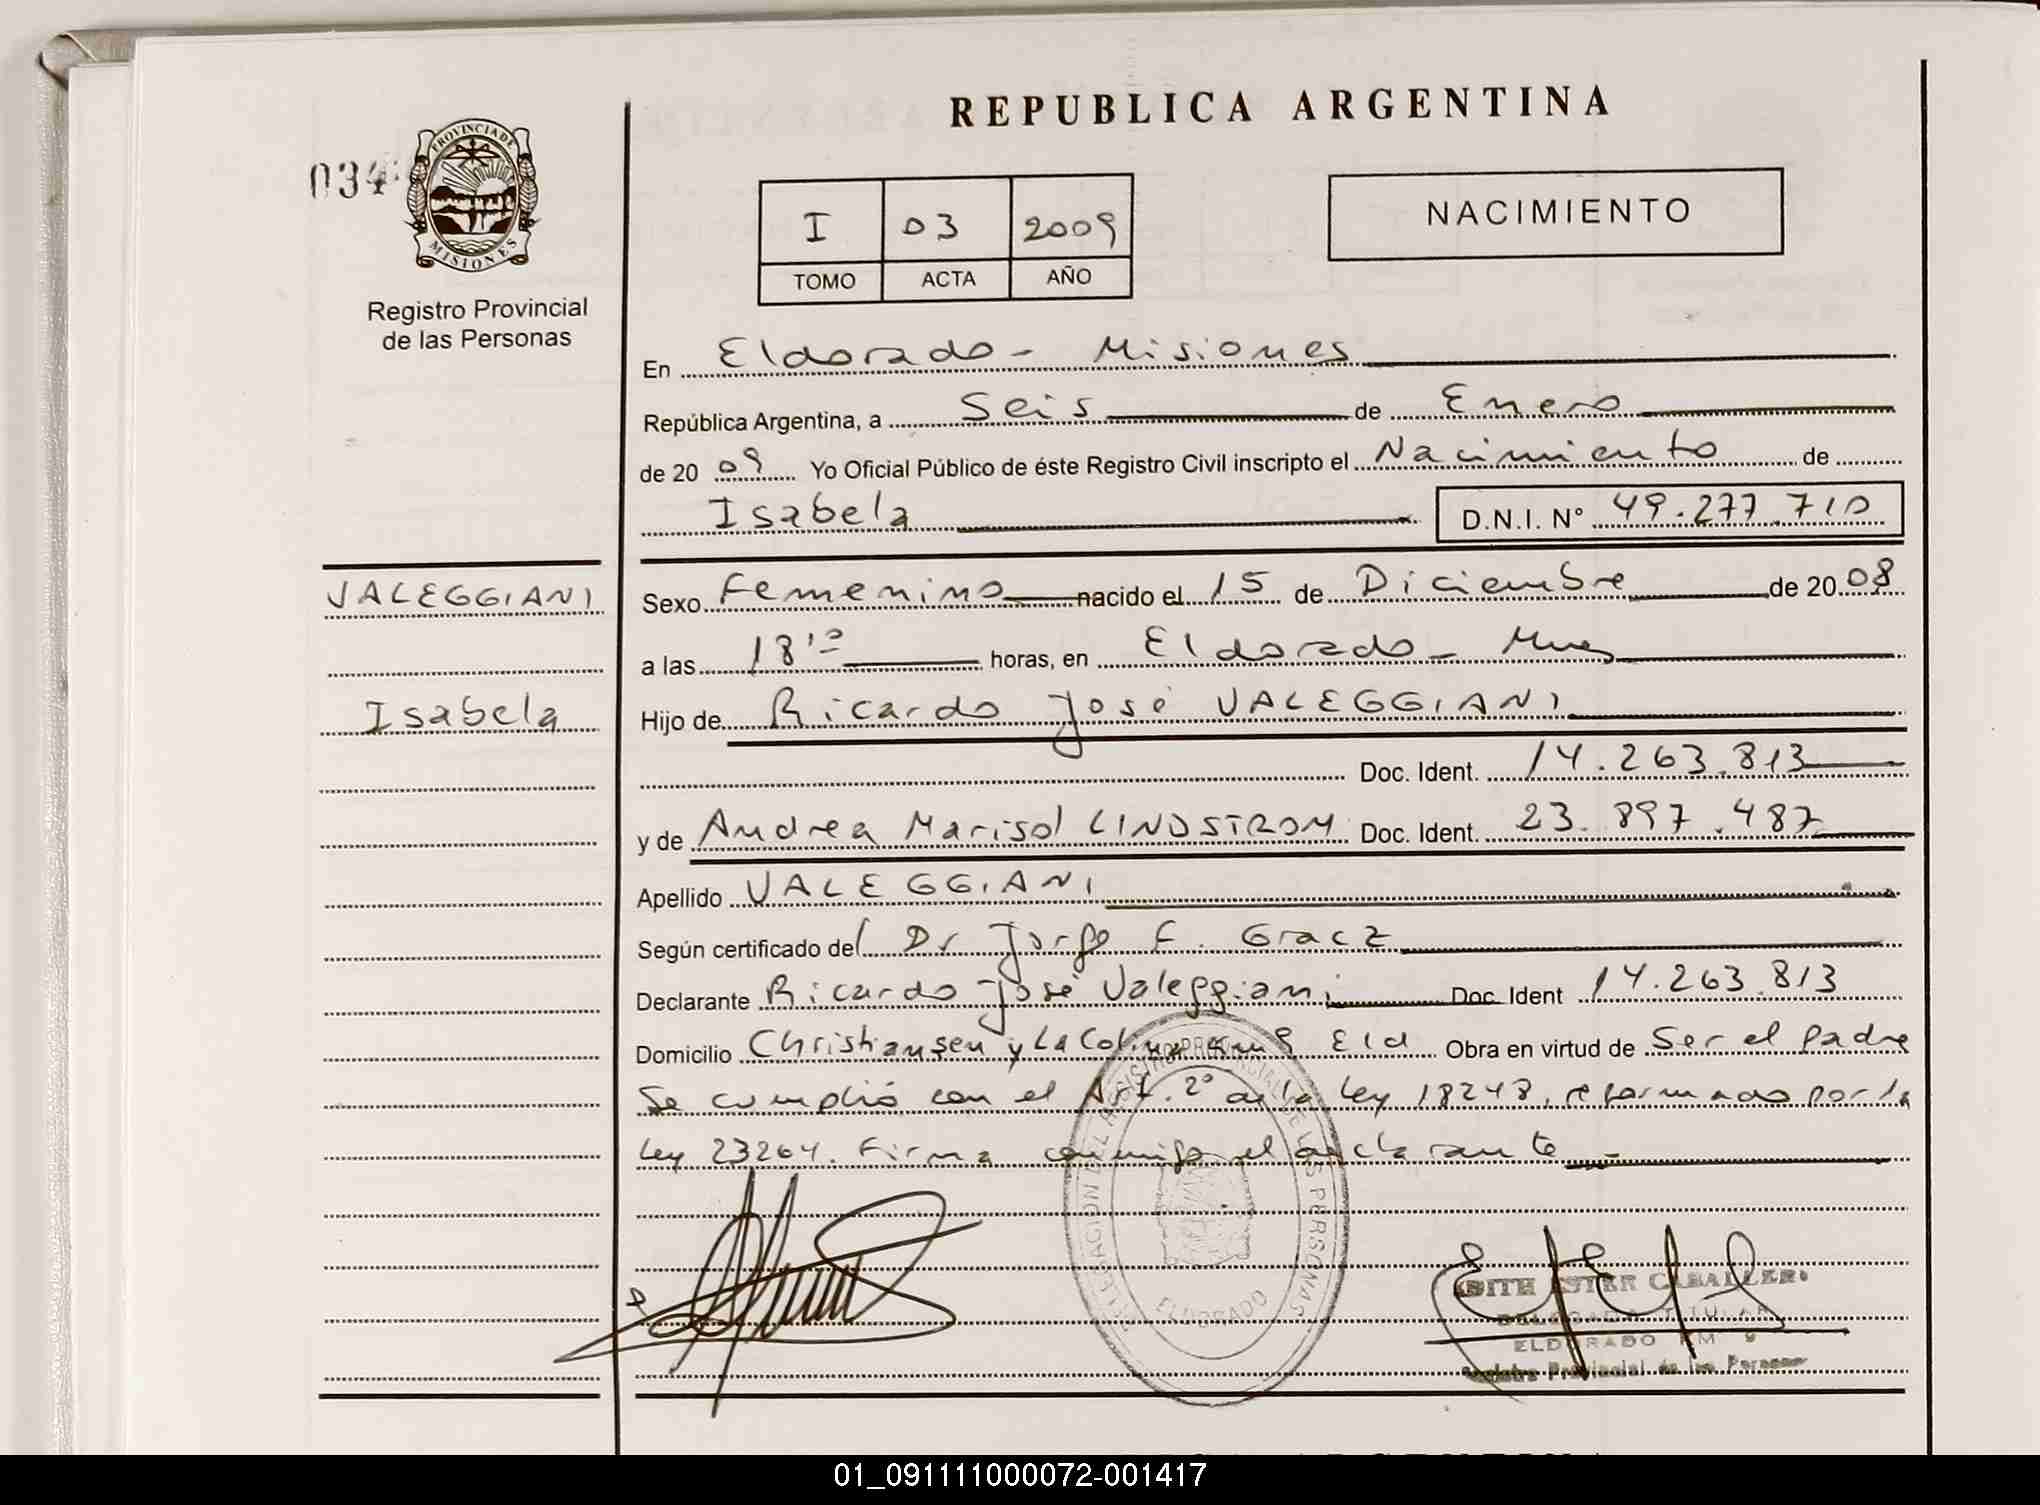 REPUBLICA ARGENTINA
034
PROVINCIA DE
MISIONES
Registro Provincial
de las Personas
I 03 2009
TOMO ACTA AÑO
NACIMIENTO
En Eldorado - Misiones
República Argentina, a Seis de Enero
de 20 09 Yo Oficial Público de éste Registro Civil inscripto el Nacimiento de
Isabela D.N.I. N° 49.277.710
VALEGGIANI
Isabela
Sexo Femenino nacido el 15 de Diciembre de 20 08
a las 18'10 horas, en Eldorado - Mnes
Hijo de Ricardo José VALEGGIANI
Doc. Ident. 14.263.813
y de Andrea Marisol LINDSTROM Doc. Ident. 23.897.487
Apellido VALEGGIANI
Según certificado del Dr Jorge F. Gracz
Declarante Ricardo José Valeggiani Doc. Ident 14.263.813
Domicilio Christiansen y La Colina Km 8 Eld Obra en virtud de Ser el padre
Se cumplió con el Art. 2° de la ley 18248, reformado por la
ley 23264. Firma conmigo el declarante -
DELEGACION DEL REGISTRO PROVINCIAL DE LAS PERSONAS
ELDORADO
EDITH ESTER CABALLERO
DELEGADA TITULAR
ELDORADO KM 9
Registro Provincial de las Personas
01_091111000072-001417